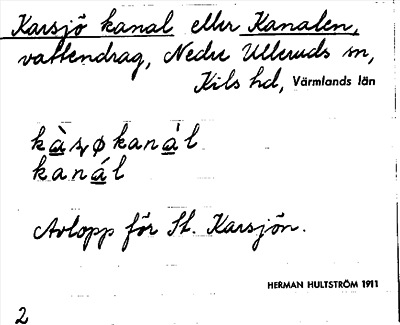 Karsjö kanal eller Kanalen,
vattendrag, Nedre Ulleruds sn,
Kils hd, Värmlands län
kàʂøkanàl
kanál
Avlopp för St. Karsjön.
HERMAN HULTSTRÖM 1911
2